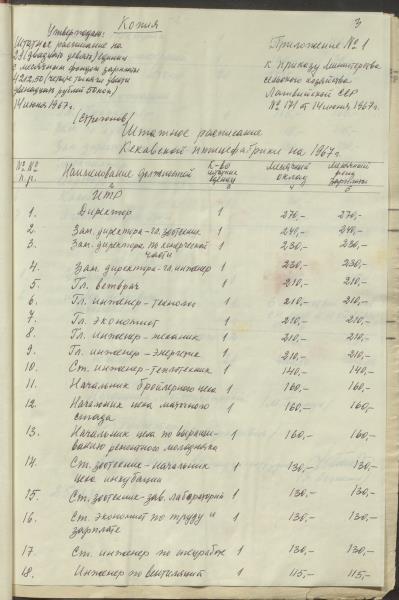 Копия
3
Утверждаю:
Штатное расписание на
29 (двадцать девять) единиц
с месячным фондом зарплаты
4212.50 (четыре тысячи двести
двенадцать рублей 50 коп)
14 июня 1967г.
Приложение № 1
к приказу Министерства
сельского хозяйства
Латвийской ССР
№ 171 от 14 июня 1967г.
Штатное расписание
Кекавской птицефабрики на 1967г.
№№ п.п. Наименование должностей К-во штатных единиц Месячный оклад Месячный фонд зарплаты
2 3 4 5
ИТР
1. Директор 1 270,- 270,-
2. Зам. директора-гл. зоотехник 1 240,- 240,-
3. Зам. директора по коммерческой
части 1 230,- 230,-
4. Зам. директора-гл. инженер 1 230,- 230,-
5. Гл. ветврач 1 210,- 210,-
6. Гл. инженер-технолог 1 210,- 210,-
7. Гл. экономист 1 210,- 210,-
8. Гл. инженер-механик 1 210,- 210,-
9. Гл. инженер-энергетик 1 210,- 210,-
10. Ст. инженер-теплотехник 1 140,- 140,-
11. Начальник бройлерного цеха 1 160,- 160,-
12. Начальник цеха маточного
стада 1 160,- 160,-
13. Начальник цеха по выращи-
ванию ремонтного молодняка 1 160,- 160,-
14. Ст. зоотехник-начальник
цеха инкубации 1 130,- 130,-
15. Ст. зоотехник-зав. лабораторией 1 130,- 130,-
16. Ст. экономист по труду и
зарплате 1 130,- 130,-
17. Ст. инженер по 1 130,- 130,-
18. Инженер по вентиляции 1 115,- 115,-